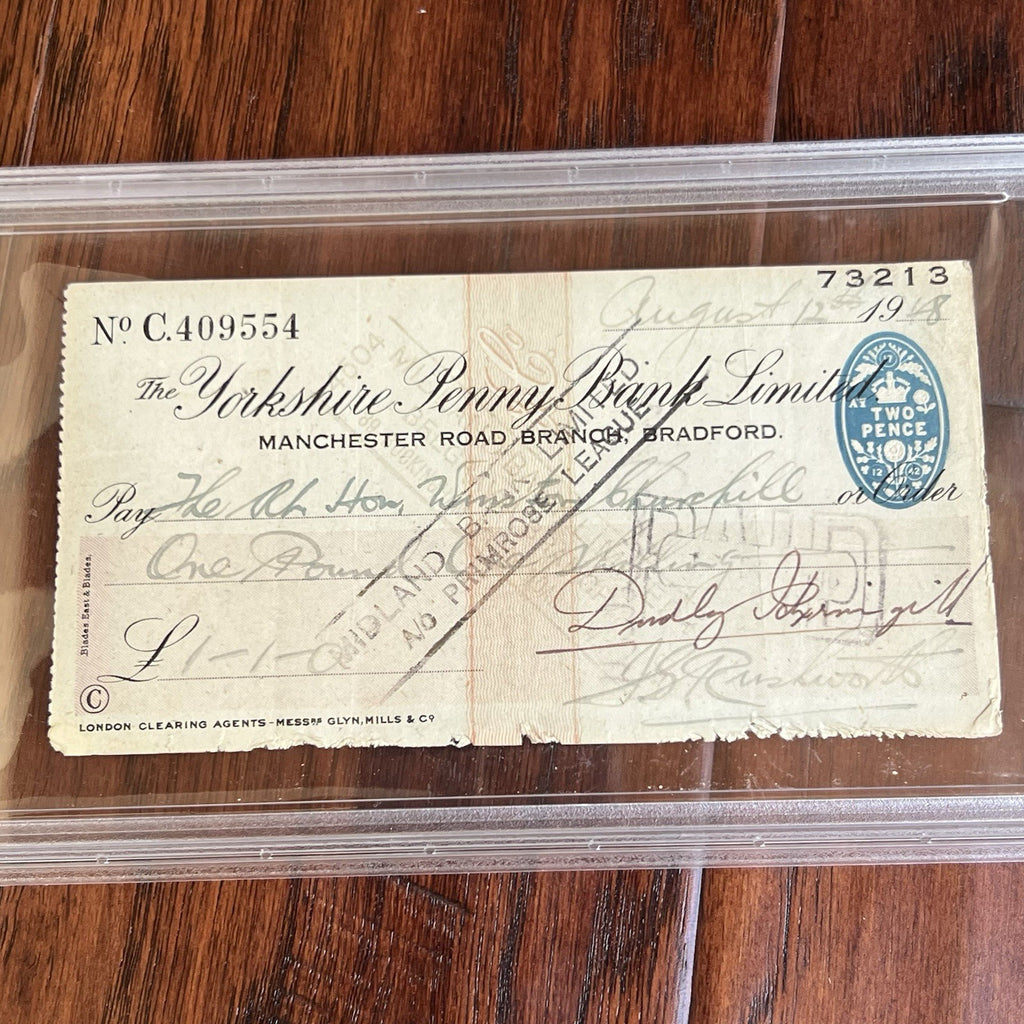 73213
Nº C.409554
August 12th 1948
The Yorkshire Penny Bank Limited.
MANCHESTER ROAD BRANCH, BRADFORD.
TWO
PENCE
Pay The Rt Hon. Winston Churchill or Order
One Pound One Shilling
MIDLAND BANK LIMITED
A/C PRIMROSE LEAGUE
PAID
Dudley
£ 1-1-0
J S Rushworth
Blades, East & Blades.
C
LONDON CLEARING AGENTS-MESSRS GLYN, MILLS & Cº